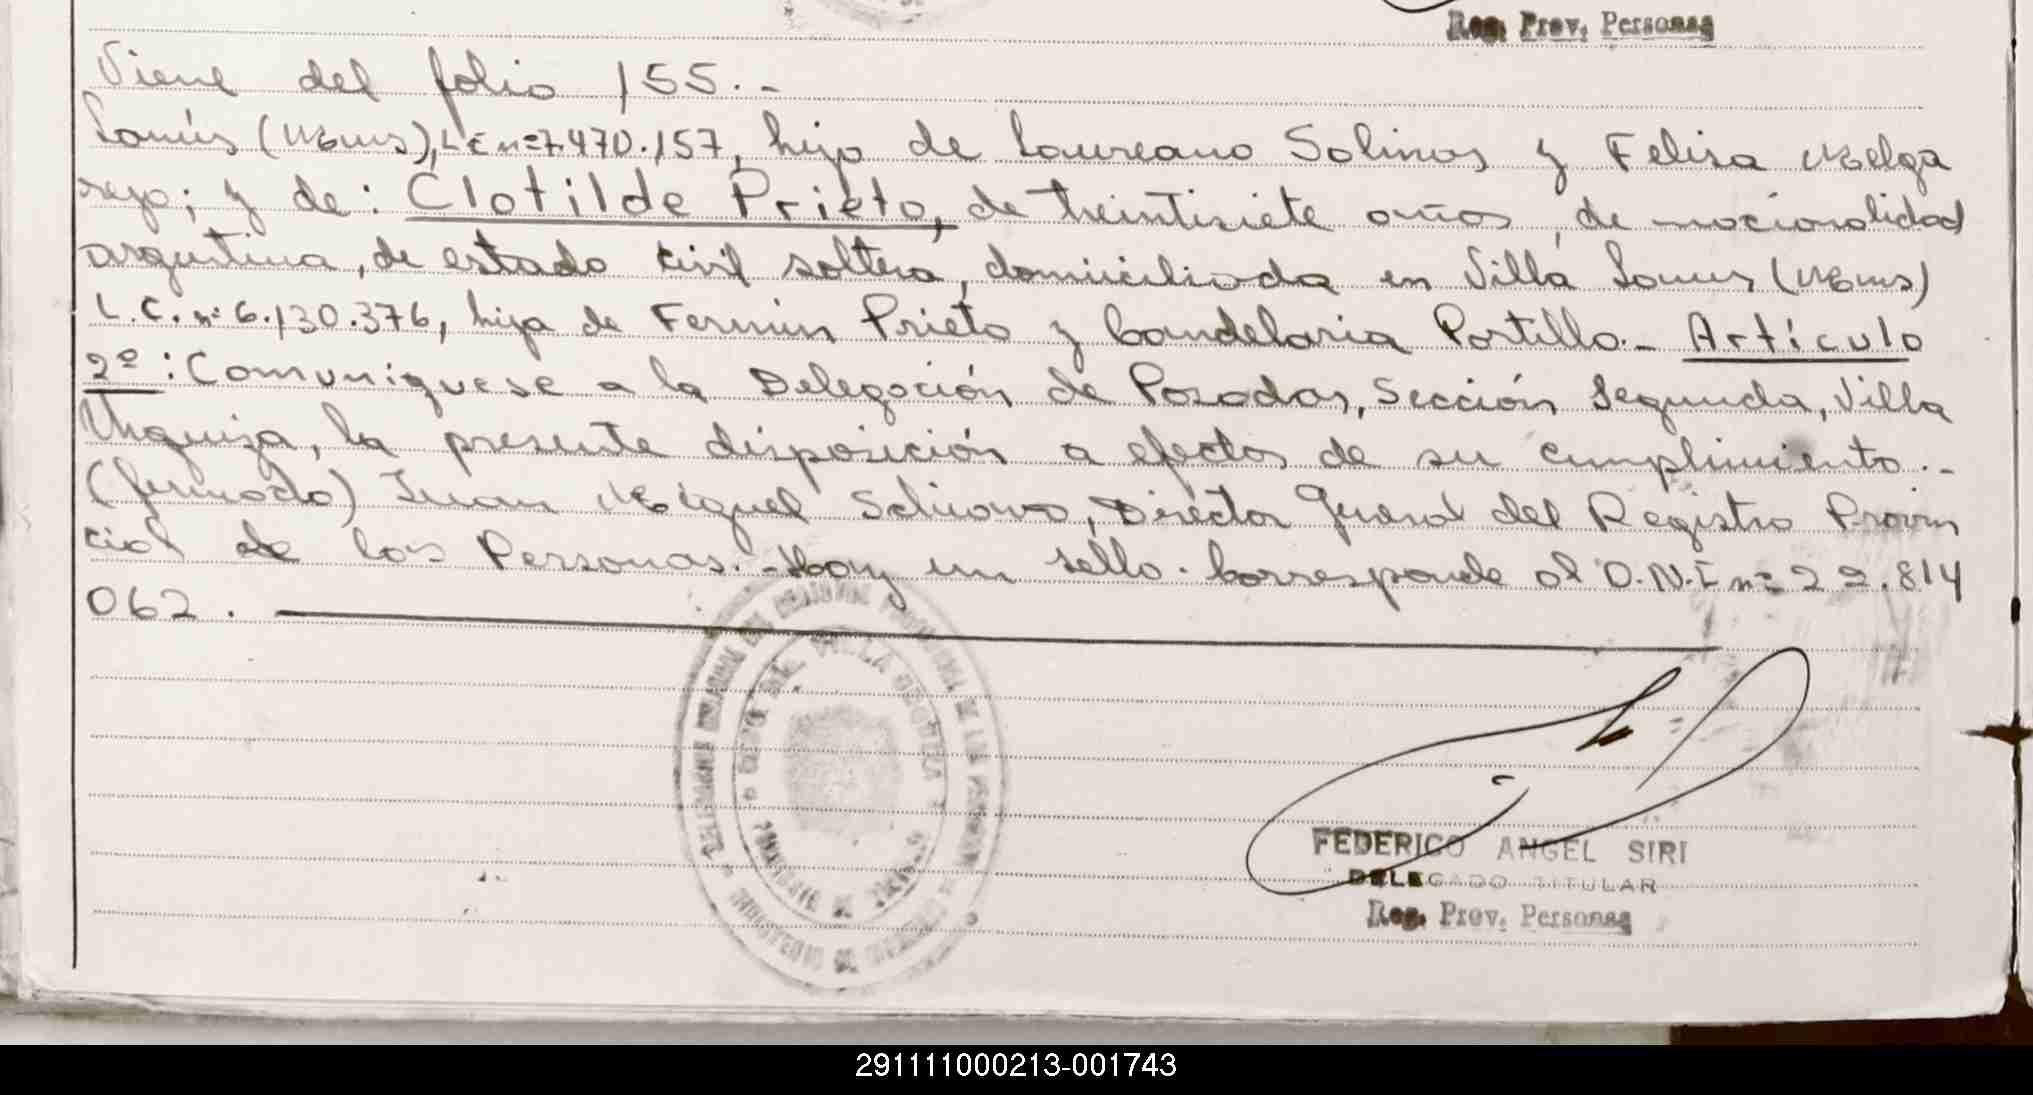 Reg. Prov. Personas
Viene del folio 155.-
Lanús (Mnes), L.E n=7.470.157, hijo de Laureano Solinas y Felisa Melga
rejo; y de: Clotilde Prieto, de treintisiete años, de nacionalidad
argentina, de estado civil soltera, domiciliada en Villa Lanus (Mnes)
L.C. n= 6.130.376, hija de Fermin Prieto y Candelaria Portillo.- Artículo
2º: Comuniquese a la Delegación de Posadas, Sección Segunda, Villa
Urquiza, la presente disposición a efectos de su cumplimiento.-
(firmado) Juan Miguel Director General del Registro Provin
cial de las Personas.- Hay un sello. Corresponde al D.N.I n= 22.814
062.
FEDERICO ANGEL SIRI
DELEGADO TITULAR
Reg. Prov. Personas
291111000213-001743